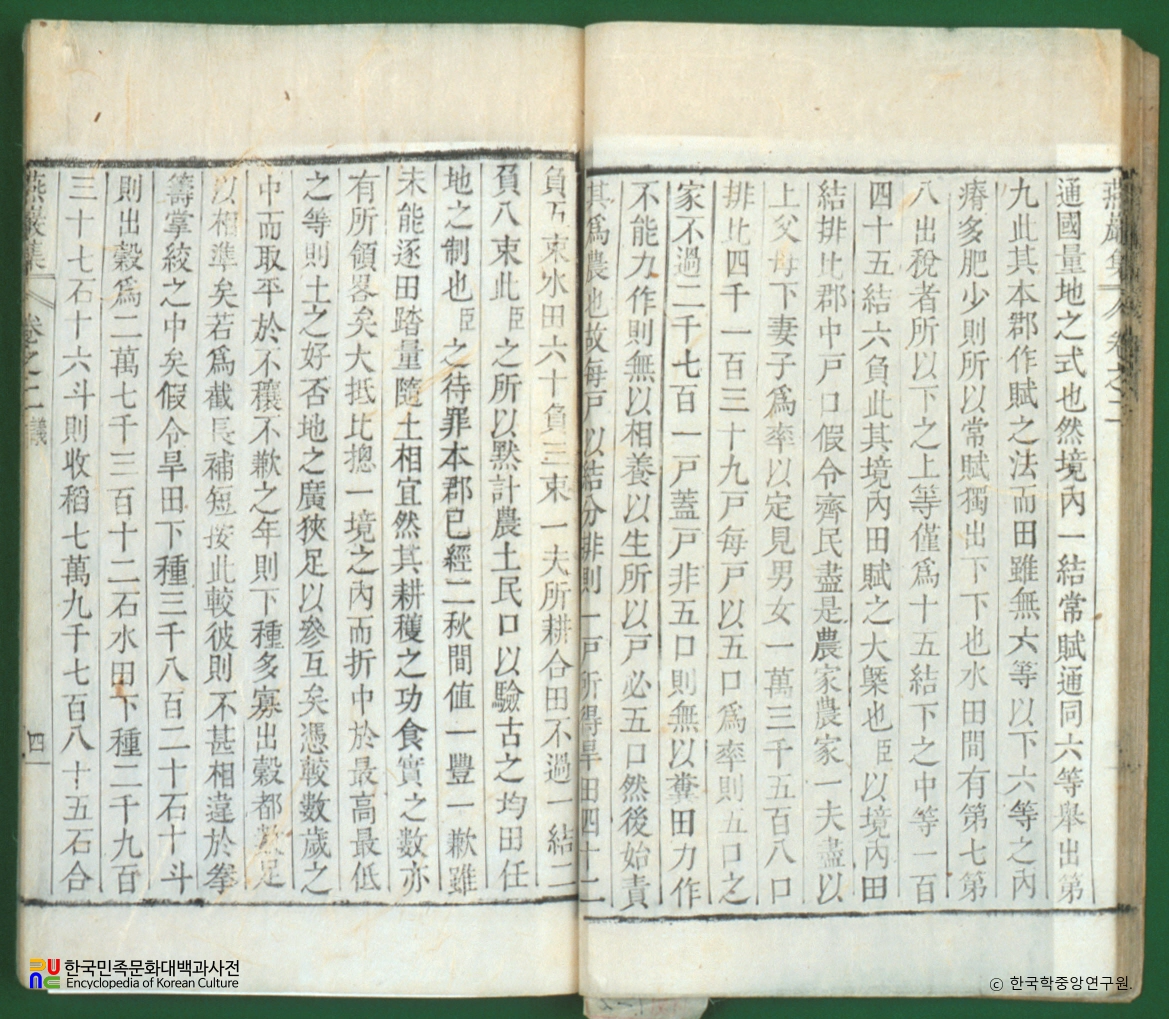 燕巖集 卷之二
通國量地之式也然境內一結常賦通同六等舉出第
九此其本郡作賦之法而田雖無六等以下六等之內
瘠多肥少則所以常賦獨出下下也水田間有第七第
八出稅者所以下之上等僅爲十五結下之中等一百
四十五結六負此其境內田賦之大槩也臣以境內田
結排比郡中戶口假令齊民盡是農家農家一夫盡以
上父母下妻子爲率以定見男女一萬三千五百八口
排比四千一百三十九戶每戶以五口爲率則五口之
家不過二千七百一戶蓋戶非五口則無以糞田力作
不能力作則無以相養以生所以戶必五口然後始責
其爲農也故每戶以結分排則一戶所得旱田四十二
負五束水田六十負三束一夫所耕合田不過一結二
負八束此臣之所以默計農土民口以驗古之均田任
地之制也臣之待罪本郡已經二秋間值一豐一歉雖
未能逐田踏量隨土相宜然其耕穫之功食實之數亦
有所領畧矣大抵比摠一境之內而折中於最高最低
之等則土之好否地之廣狹足以參互矣憑較數歲之
中而取平於不穰不歉之年則下種多寡出穀都數足
以相準矣若爲截長補短按此較彼則不甚相違於拳
籌掌絞之中矣假令旱田下種三千八百二十石十斗
則出穀爲二萬七千三百十二石水田下種二千九百
三十七石十六斗則收稻七萬九千七百八十五石合
燕巖集 卷之二 議 四
한국민족문화대백과사전
Encyclopedia of Korean Culture
ⓒ 한국학중앙연구원.